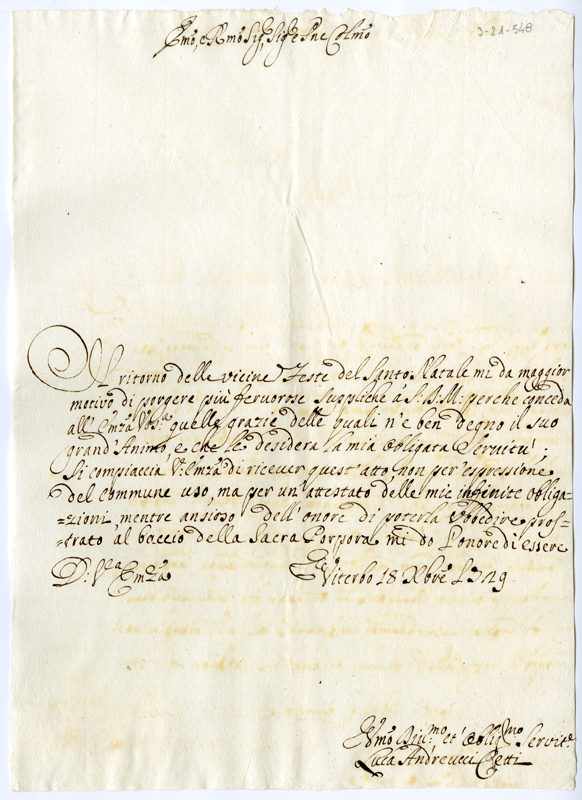 Emo, e Rmo Sig.r Sig.r e Pne Colmo
3-21-548
Il ritorno delle vicine Feste del Santo Natale mi da maggior
motivo di porgere più fervorose suppliche à S.D.M: perche conceda
all'Emza Vra quelle grazie delle quali n'è ben degno il suo
grand'Animo, e che le desidera la mia obligata Servitù:
Si compiaccia V: Emza di ricever quest'atto, non per espressione
del commune uso, ma per un'attestato delle mie infinite obliga=
=zioni, mentre ansioso dell'onore di poterla Vbbedire pros=
=trato al baccio della Sacra Porpora mi do l'onore di essere
D: V.ra Emza
Viterbo 18 Xbre 1729
Vmo Div.mo et Oblig.mo Servit.e
Luca Andreucci